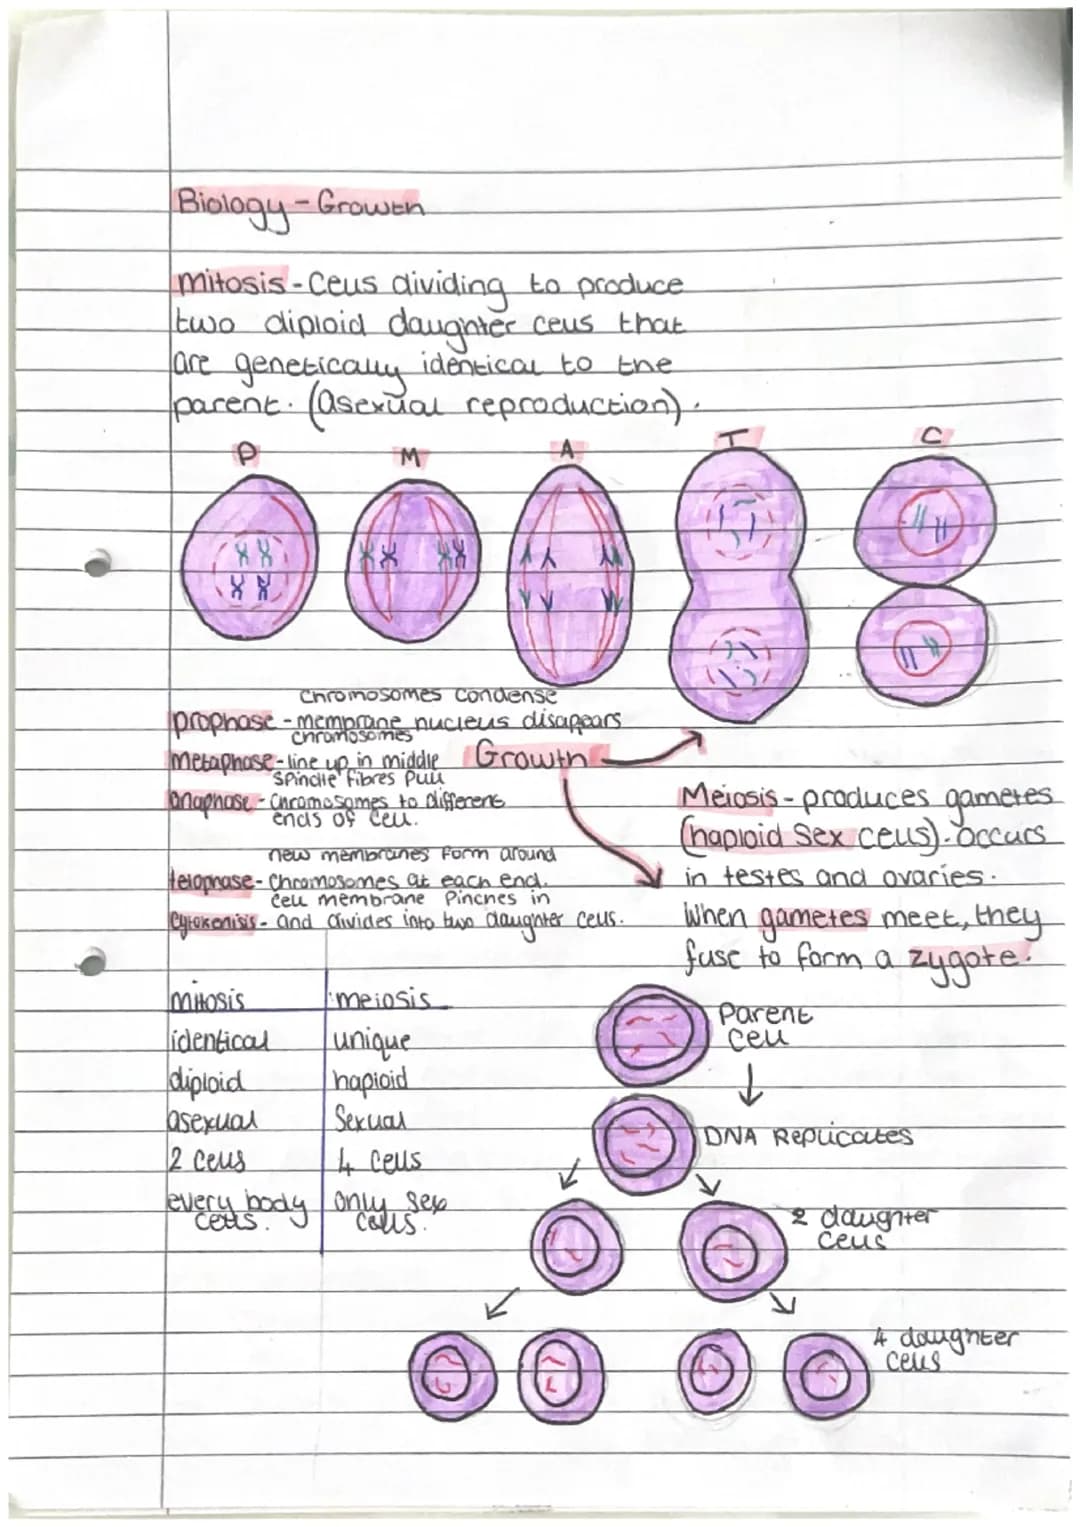 Biology - Growth
Mitosis - Cells dividing to produce
two diploid daughter cells that
are genetically identical to the
parent. (asexual reproduction).
P M A T C
chromosomes condense
prophase - membrane nucleus disapears
chromosomes
Metaphase - line up in middle
spindle fibres pull
anaphase - chromosomes to different
ends of cell.
new membranes form around
telophase - chromosomes at each end.
cell membrane pinches in
cytokenisis - and divides into two daughter cells.
Growth
Meiosis - produces gametes
(haploid sex cells). occurs
in testes and ovaries.
When gametes meet, they
fuse to form a zygote.
mitosis meiosis
identical unique
diploid haploid
asexual sexual
2 cells 4 cells
every body only sex
cells. cells.
Parent
cell
DNA Replicates
2 daughter
cells
4 daughter
cells